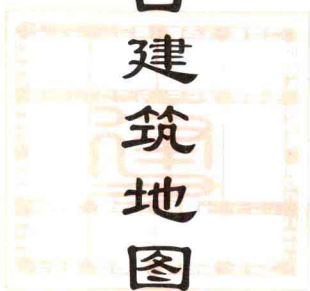 建筑地图